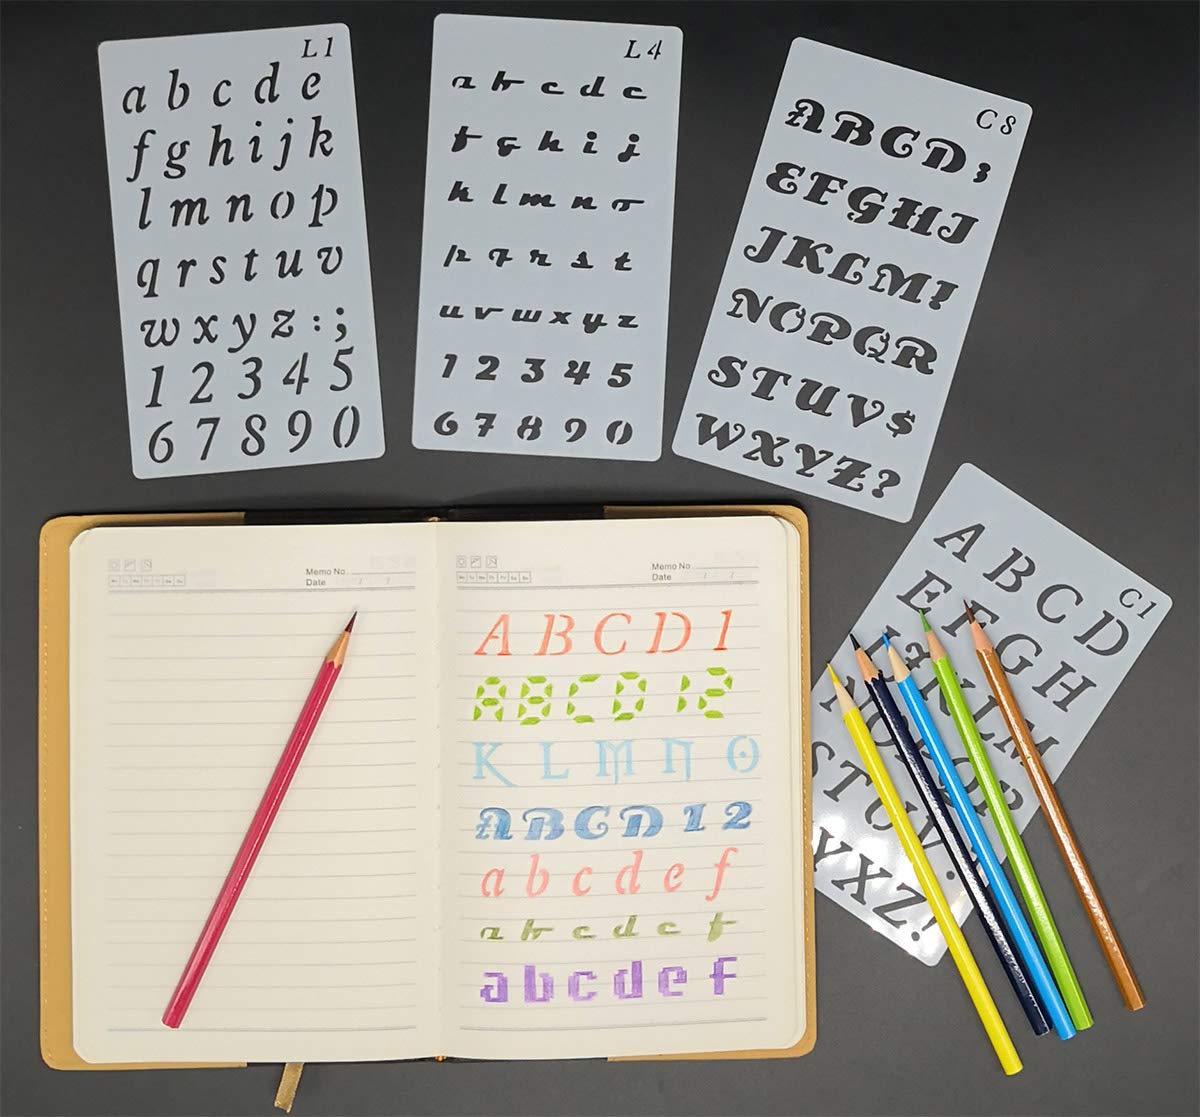 L1
a b c d e
f g h i j k
l m n o p
q r s t u v
w x y z : ;
1 2 3 4 5
6 7 8 9 0
L4
a b c d e
f g h i j
k l m n o
p q r s t
u v w x y z
1 2 3 4 5
6 7 8 9 0
C8
A B C D ;
E F G H I
J K L M !
N O P Q R
S T U V $
W X Y Z ?
C1
A B C D
E F G H
K L M
N O P Q R
S T U V
X Z !
Memo No.
Date / /
Memo No.
Date / /
A B C D 1
A B C D 1 2
K L M N O
A B C D 1 2
a b c d e f
a b c d e f
a b c d e f